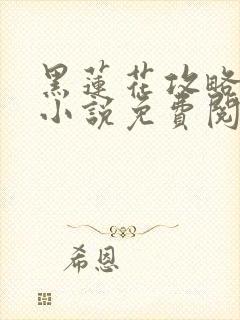 黑蓮花攻略
小說免費閱
希恩